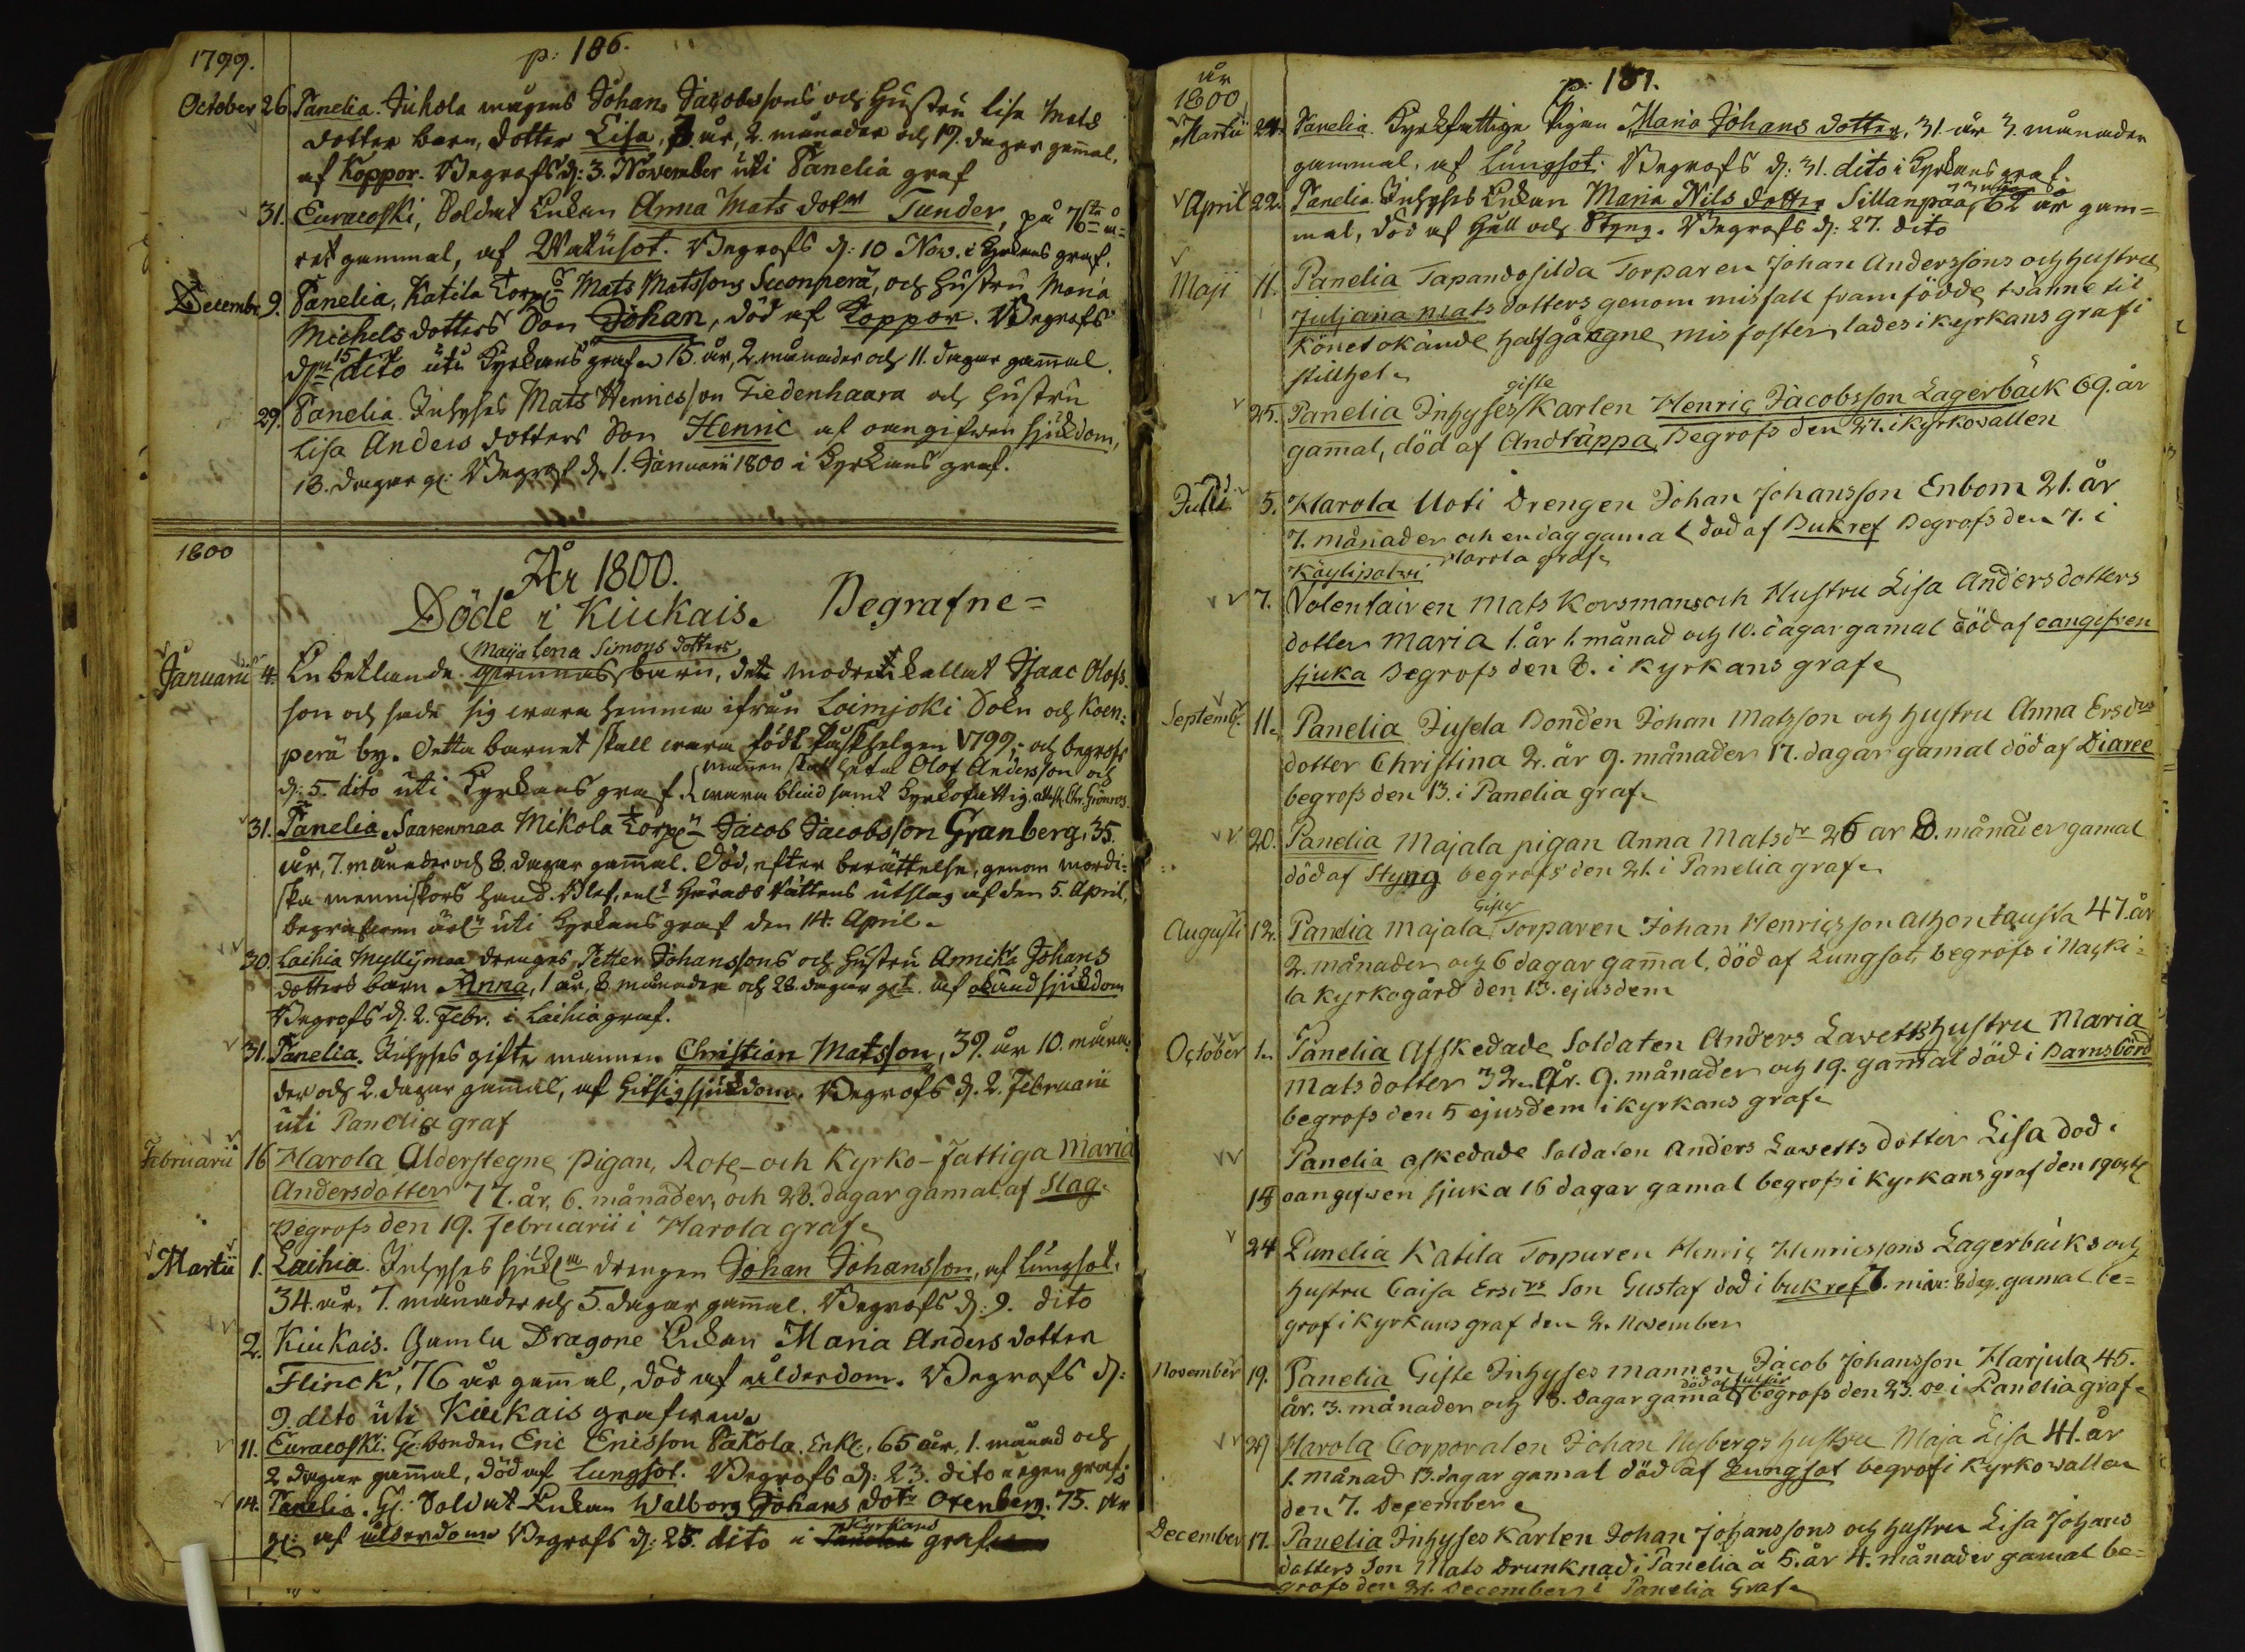 1799. p: 186.
October 26. Panelia. Juhola mågens Johans Jacobssons och Hustru Lisa Mats
dotter barn, dotter Lisa, 3. år, 2. månader och 19. dagar gamal,
af Koppor. Begrofs d: 3. November uti Panelia graf
31. Euracoski, Soldat Enkan Anna Mats dotr Tunder, på 76te å=
ret gammal, af Watusot. Begrofs d: 10 Nov. i Kyrkans graf.
Decembr 9. Panelia, Katila Torpn Mats Matssons Suonperä, och Hustru Maria
Michels dotters Son Johan, död af Koppor. Begrofs
dn 15 dito uti Kyrkans graf. 15. år, 2. månader och 11. dagar gamal.
29. Panelia. Inhyses Mats Henricsson Tiedenhaara och Hustru
Lisa Anders dotters Son Henric af oangifwen sjukdom,
13. dagar gl: Begrof. d. 1. Januarii 1800 i Kyrkans graf.
1800
År 1800.
Döde i Kiukais. Begrafne=
Maija Lena Simons dotters
Januarii 4. En betlande qwinnas barn, det modren kallat Isaac Olofs-
son och sade sig wara hemma ifrån Loimjoki Sokn och Koen=
perä by. Detta barnet skall wara födt Påskhelgen 1799. och begrofs
d: 5. dito uti Kyrkans graf. mannen skall heta Olof Andersson och
wara blind samt Kyrkofattig.
31. Panelia Saarenmaa Mikola Torpn Jacob Jacobsson Granberg, 35.
år, 7. månader och 8. dagar gamal. Död, efter berättelse, genom mordi=
ska menniskors hand. Blef, enl. Härads Rättens utslag af den 5. April,
begrafwen uti Kyrkans graf den 14. April.
30. Laihia Myllymaa drenges Petter Johanssons och Hustru Annika Johans
dotters barn Anna, 1 år, 8 månader och 28. dagar gl. af okänd sjukdom
Begrofs d. 2. Febr. i Laihia graf.
31. Panelia. Inhyses gifte mannen Christian Matsson, 39. år 10. måna=
der och 2. dagar gamal, af Hitsig sjukdom. Begrofs d. 2. Februarii
uti Panelia graf
Februarii 16 Harola Ålderstegne pigan, Rote- och Kyrko-Fattiga Maria
Andersdotter 77. år, 6. månader, och 28. dagar gamal, af Slag.
Begrofs den 19. Februarii i Harola graf.
Martii 1. Laihia. Inhyses drengen Johan Johansson, af Lungsot.
34. år, 7. månader och 5. dagar gamal. Begrofs d: 9. dito
2. Kiukais. Gamla Dragone Enkan Maria Anders dotter
Flinck, 76 år gamal, död af ålderdom. Begrofs d:
9. dito uti Kiukais grafwen.
11. Euracoski. Gl: bonden Eric Ericsson Pakola. Enkl:, 65 år, 1. månad och
2 dagar gamal, död af Lungsot. Begrofs d: 23. dito i egen graf
14. Panelia. Gl: Soldat-Enkan Walborg Johans dotr Oxenberg. 75. år
gl: af ålderdom Begrofs d: 23. dito i Kyrkans graf.
år
1800 p: 187.
Martii 24. Panelia. Kyrkfattige Pigan Maria Johans dotter, 31. år 3. månader
gammal, af Lungsot. Begrofs d: 31. dito i Kyrkans graf.
April 22. Panelia Inhyses Enkan Maria Nils dotter Sillanpää, 62 år gam=
mal, död af Håll och Styng. Begrofs d: 27. dito
Maji 11. Panelia Tapandosilda Torparen Johan Anderssons och hustru
Juliana Mats dotters genom misfall framfödde twänne til
Könet okände halfgångne misfoster lades i kyrkans graf i
stillhet.
gifte
25. Panelia Inhyses Karlen Henric Jacobsson Lagerbäck 69. år
gamal, död af Andtäppa Begrofs den 27. i Kyrkowallen
Julii 5. Harola Uoti Drengen Johan Johansson Enbom 21. år
7. månader och en dag gamal död af Bukref Begrofs den 7. i
Harola graf.
Köylipolwi
7. Volentairen Mats Korsmans och Hustru Lisa Andersdotters
dotter Maria 1. år 1. månad och 10. dagar gamal död af oangifven
sjuka Begrofs den 8. i kyrkans graf.
Septembr. 11. Panelia Jusela Bonden Johan Matsson och hustru Anna Ersdrs
dotter Christina 2. år 9. månader 17. dagar gamal död af Diaree
begrofs den 13. i Panelia graf.
20. Panelia Majala pigan Anna Matsdr 26 år 8. månader gamal
död af Styng begrofs den 21. i Panelia graf.
Gifte
Augusti 12. Panelia Majala Torparen Johan Henricsson Ahontausta 47. år
2. månader och 6 dagar gamal, död af Lungsot, begrofs i Nacki=
la kyrkogård den 13. ejusdem
October 1. Panelia Afskedade Soldaten Anders Lavetts hustru Maria
Matsdotter 32. År. 9. månader och 19. gamal död i Barnsbörd
begrofs den 5 ejusdem i kyrkans graf.
Panelia afskedade Soldaten Anders Lavetts dotter Lisa död i
14 oangifwen sjuka 16 dagar gamal begrofs i Kyrkans graf den 19
24 Panelia Katila Torparen Henric Henricssons Lagerbäcks och
hustru Caisa Ersdrs Son Gustaf död i bukref 7. mån: 8 dag. gamal be=
grof i Kyrkans graf den 2. November
November 19. Panelia Gifte Inhyses mannen Jacob Johansson Harjula 45.
år. 3. månader och 18. dagar gamal begrofs den 23. i Panelia graf.
29 Harola Corporalen Johan Nybergs hustru Maja Lisa 41. år
1. månad 13. dagar gamal död af Lungsot begrof i Kyrkowallen
den 7. December.
December 17. Panelia Inhyses Karlen Johan Johanssons och hustru Lisa Johans
dotters Son Mats drunknad i Panelia å 5. år 4. månader gamal be=
grofs den 21. December i Panelia Graf.